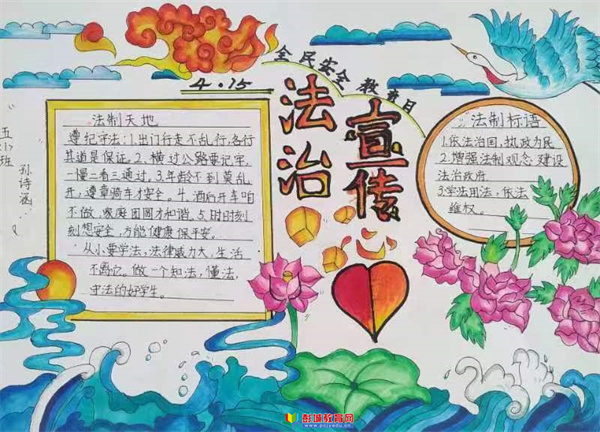 全民安全教育日
4.15
法治
宣传
法制天地
遵纪守法:1.出门行走不乱行,各行
其道是保证.2.横过公路要记牢,
一慢二看三通过.3.年龄不到莫乱
开,遵章骑车才安全.4.酒后开车咱
不做,家庭团圆才和谐.5.时时刻
刻想安全,方能健康保平安.
从小要学法,法律威力大,生活
不离它。做一个知法,懂法,
守法的好学生。
法制标语
1.依法治国,执政为民
2.增强法制观念 建设
法治政府
3.学法用法,依法
维权。
五小班
孙诗涵
彭城教育网